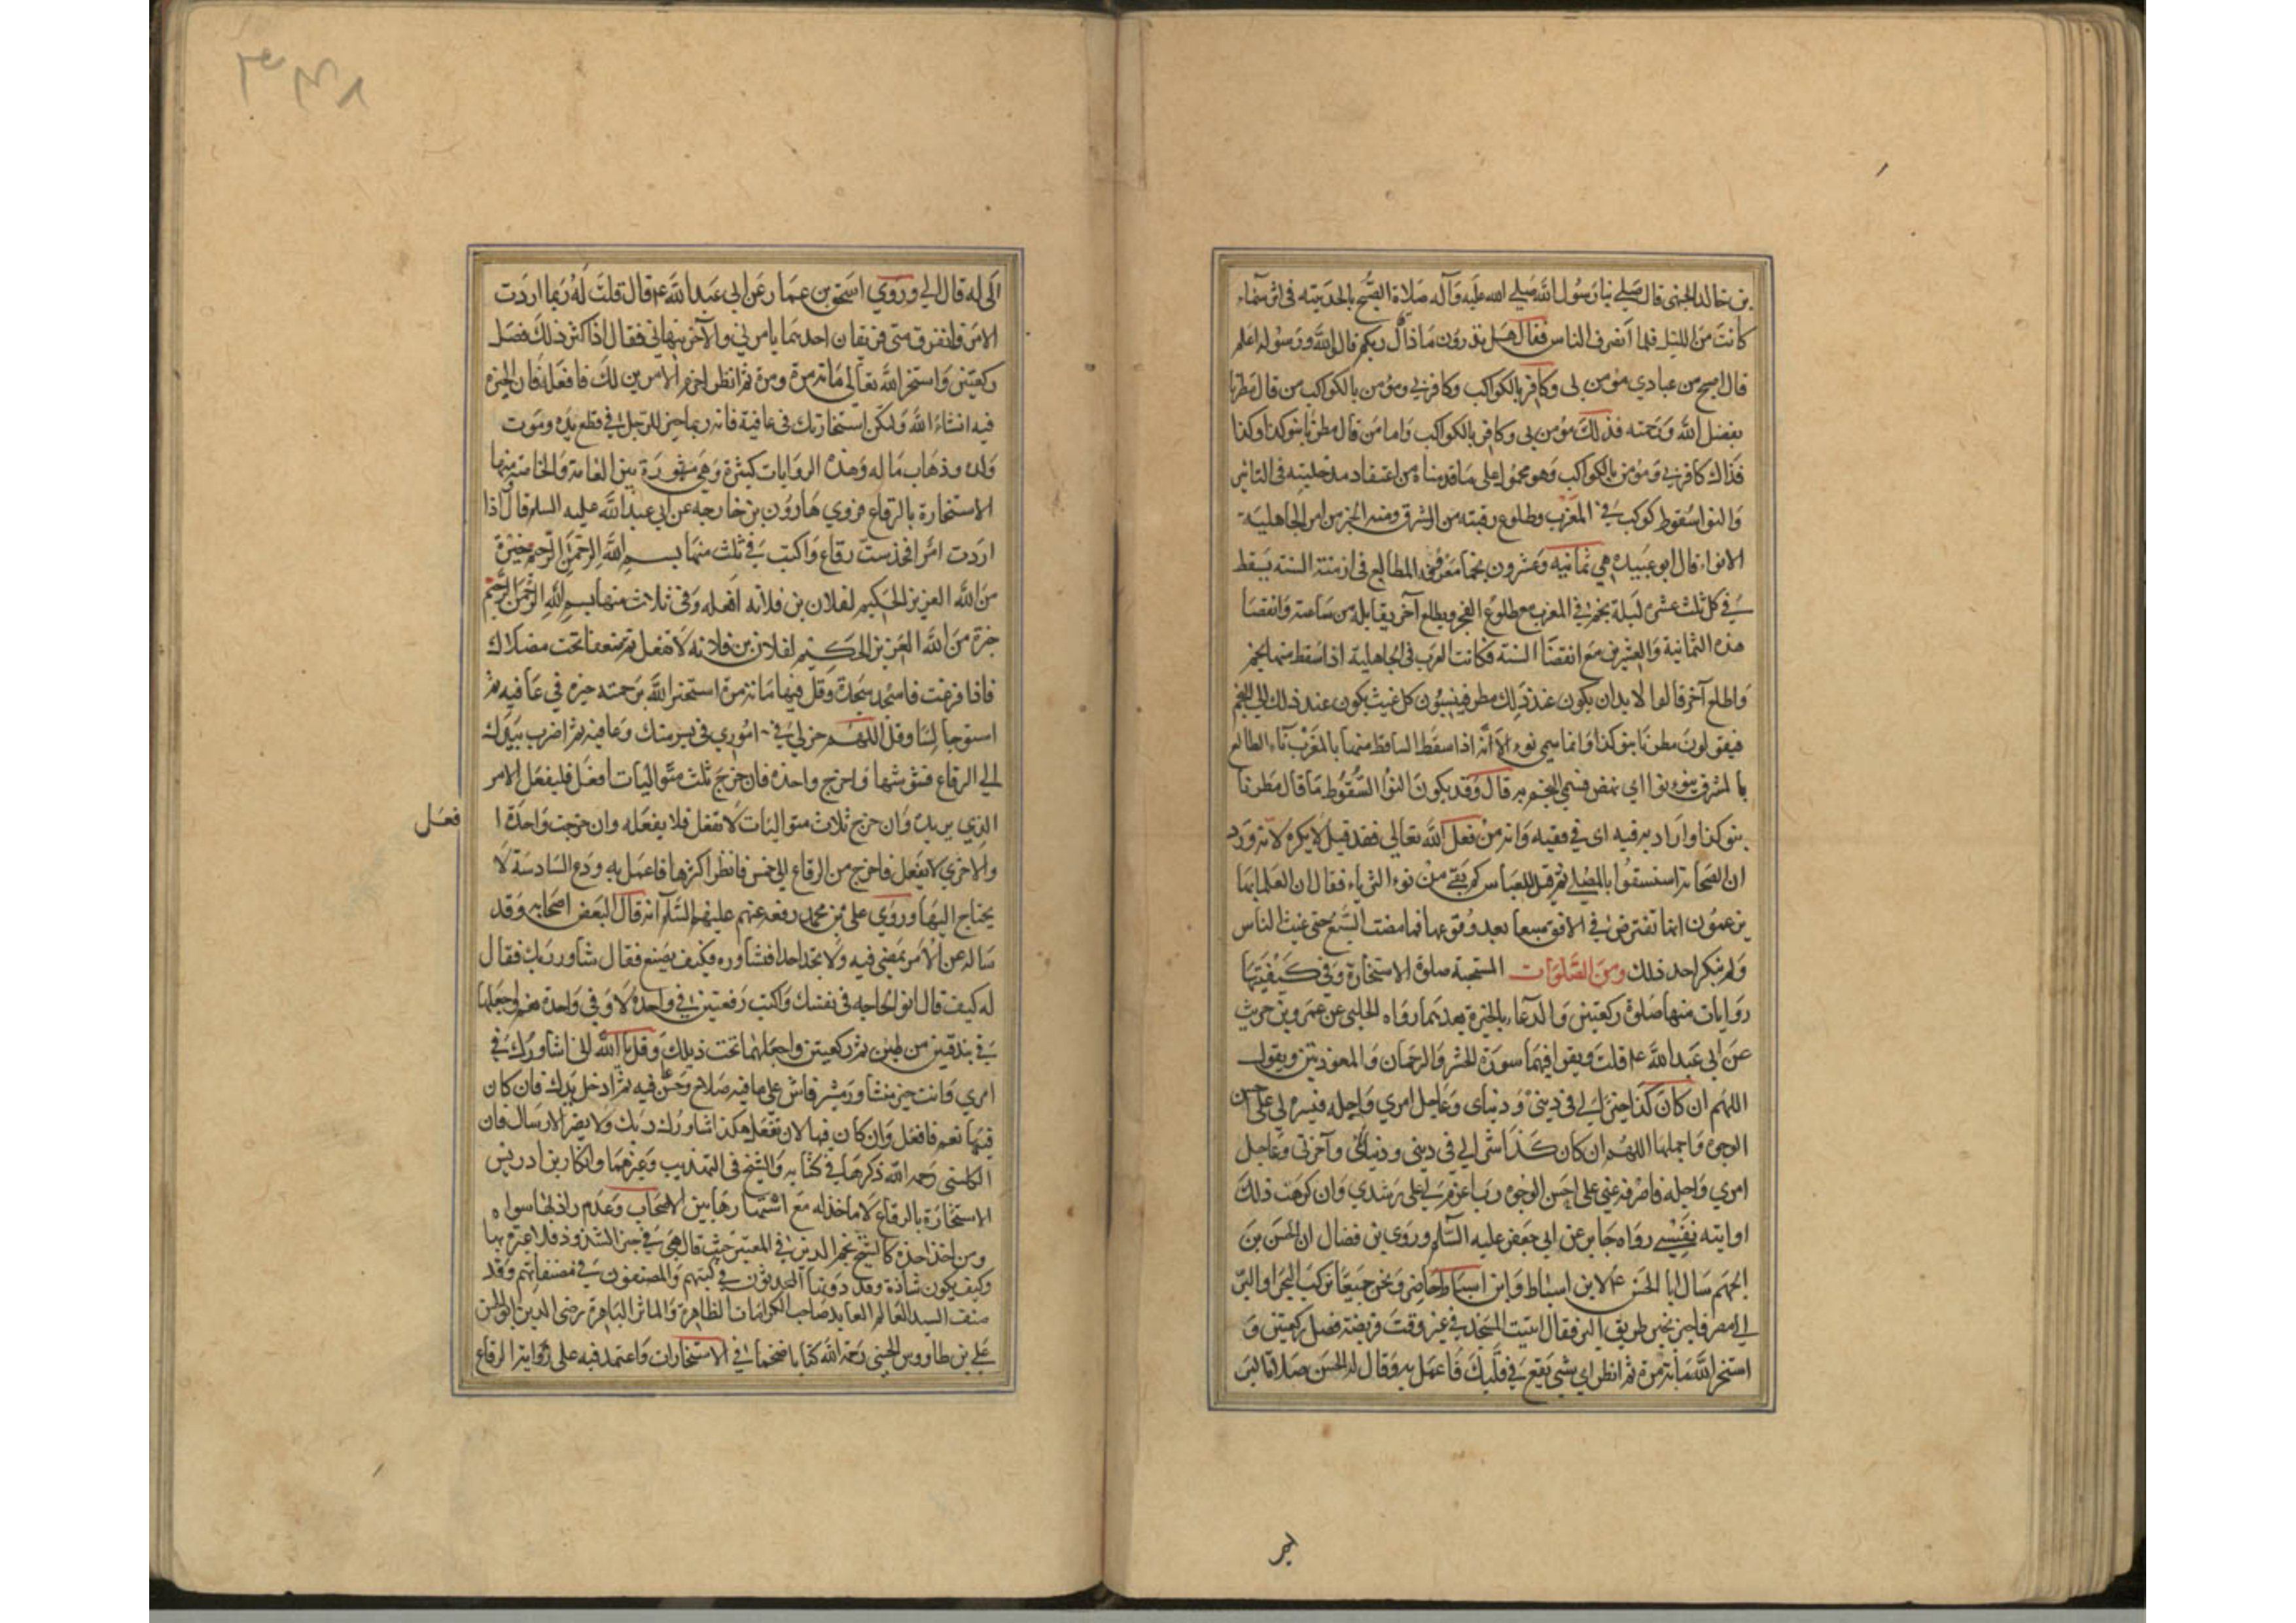 بن خالد الجهنى قال صلى بنا رسول الله صلى الله عليه وآله صلاة الصبح بالحديبيه فى اثر سماء
كانت من الليل فلما انصرف الناس فقال هل تدرون ماذا قال ربكم قالوا الله ورسوله اعلم
قال اصبح من عبادي مؤمن بى وكافر بالكواكب وكافر بي ومؤمن بالكواكب من قال مطرنا
بفضل الله ورحمته فذلك مؤمن بى وكافر بالكواكب واما من قال مطرنا بنو كذا وكذا
فذاك كافر بي ومؤمن بالكواكب وهو محمول على ما قدمناه من اعتقاد مدخليته فى التاثير
والنوا سقوط كوكب في المغرب وطلوع رقيبه من المشرق ومنه الخبر من امر الجاهلية
الانواء قال ابو عبيده هي ثمانيه وعشرون نجما معروفة المطالع فى ازمنة السنة يسقط
في كل ثلث عشره ليلة نجم في المغرب مع طلوع الفجر ويطلع آخر يقابله من ساعته وانقضا
هذه الثمانية والعشرين مع انقضا السنة فكانت العرب فى الجاهلية اذا سقط منها نجم
واطلع آخر قالوا لا بد ان يكون عند ذلك مطر فينسبون كل غيث يكون عند ذلك الى النجم
فيقولون مطرنا بنو كذا وانما سمى نوء لانه اذا سقط الساقط منها بالمغرب ناء الطالع
بالمشرق ينوء نوا اي نهض فسمي النجم به قال وقد يكون النوا السقوط ما قال مطرنا
بنو كذا واراد به فيه اى في وقته وانه من فعل الله تعالى فقد قيل لا يكره لانه ورد
ان الصحابة استسقوا بالمصلى ثم قيل للعباس كم بقي من نوء الثرياء فقال ان العلما بها
يزعمون انها تعترض في الافق سبعا بعد وقوعها فما مضت السبع حتى غيث الناس
ولم ينكر احد ذلك ومن الصلوات المستحبة صلوة الاستخارة وفي كيفيتها
روايات منها صلوة ركعتين والدعاء بالخيرة بعدهما رواه الحلبى عن عمرو بن حريث
عن ابى عبد الله ع قلت ويقرا فيهما سورة الحشر والرحمان والمعوذتين ويقول
اللهم ان كان كذا خيرا لي فى ديني ودنياى وعاجل امري واجله فيسره لي على احسن
الوجوه واجملها اللهم ان كان كذا شرا لي فى دينى ودنياى وآخرتى وعاجل
امري واجله فاصرفه عني على احسن الوجوه رب اعزم لي على رشدي وان كرهت ذلك
او ابته نفسي رواه جابر عن ابى جعفر عليه السلام وروى بن فضال ان الحسن بن
الجهم سال ابا الحسن ع لابن اسباط وابن اسباط حاضر ونحن جميعا نركب البحر او البر
الى مصر فاخبره بخبر طريق البر فقال ائت المسجد في غير وقت فريضة فصل ركعتين و
استخر الله مائة مرة ثم انظر اي شي يقع في قلبك فاعمل به وقال له الحسن
لبر
٣٣٨
الى له قال الي وروي اسحق بن عمار عن ابى عبد الله ع قال قلت له ربما اردت
الامر فانفرق منى فريقان احدهما يامرني والآخر ينهانى فقال اذا كنت كذلك فصل
ركعتين واستخر الله تعالى مائة مرة ومرة ثم انظر احزم الامرين لك فافعله فان الخيرة
فيه انشاء الله ولتكن استخارتك فى عافية فانه ربما خير للرجل في قطع يده وموت
ولده وذهاب ماله وهذه الروايات كثيرة وهي مشهورة بين العامة والخاصة ومنها
الاستخارة بالرقاع فروي هارون بن خارجه عن ابى عبد الله عليه السلم قال اذا
اردت امرا فخذ ست رقاع واكتب في ثلث منها بسم الله الرحمن الرحيم خيرة
من الله العزيز الحكيم لفلان بن فلانه افعله وفى ثلاث منها بسم الله الرحمن الرحيم
خيرة من الله العزيز الحكيم لفلان بن فلانه لا تفعل ثم ضعها تحت مصلاك
فاذا فرغت فاسجد سجدة وقل فيها مائة مرة استخير الله برحمته خيره في عافيه ثم
استو جالسا وقل اللهم خر لي في اموري فى يسر منك وعافيه ثم اضرب بيدك
الي الرقاع فشوشها واخرج واحده فان خرج ثلث متواليات افعل فليفعل الامر
الذي يريده وان خرج ثلاث متواليات لا تفعل فلا يفعله وان خرجت واحدة ا
فعل
والاخري لا يفعل فاخرج من الرقاع الي خمس فانظر اكثرها فاعمل به ودع السادسة لا
يحتاج اليها وروي على بن محمد رفعه عنهم عليهم السلام انه قال لبعض اصحابه وقد
ساله عن الامر يمضي فيه ولا يجد احدا فشاوره فكيف يصنع فقال شاور ربك فقال
له كيف قال انو الحاجه فى نفسك واكتب رقعتين في واحدة لا وفي واحدة نعم واجعلها
في بندقين من طين ثم ركعتين واجعلهما تحت ذيلك وقل يا الله انى اشاورك في
امري وانت خير مستشار ومشير فاشر على ما فيه صلاح وحسن عاقبة ثم ادخل يدك فان كان
فيها نعم فافعل وان كان فيها لا لا تفعل هكذا شاور ربك ولا يضر الارسال فان
الكلينى رحمه الله ذكرها في كتابه والشيخ فى التهذيب وغيرهما وانكار بن ادريس
الاستخارة بالرقاع لا ماخذ له مع اشتهارها بين الاصحاب وعدم راد لها سواه
ومن اخذ اخذه كالشيخ نجم الدين في المعتبر حيث قال هي في حيز الشذوذ فلا عبرة بها
وكيف يكون شاذة وقد دونها المحدثون في كتبهم والمصنفون في مصنفاتهم وقد
صنف السيد العالم العابد صاحب الكرامات الظاهرة والماثر الباهرة رضى الدين ابو الحسن
علي بن طاووس الحسنى رحمة الله كتابا ضخما في الاستخارات واعتمد فيه على رواية الرقاع